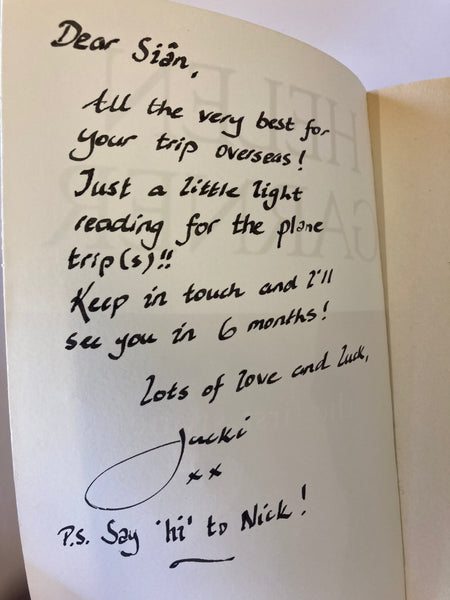 Dear Siân,
All the very best for
your trip overseas!
Just a little light
reading for the plane
trip(s)!!
Keep in touch and I'll
see you in 6 months!
Lots of love and luck,
Jacki
xx
P.S. Say 'hi' to Nick!
HELEN
GARNER